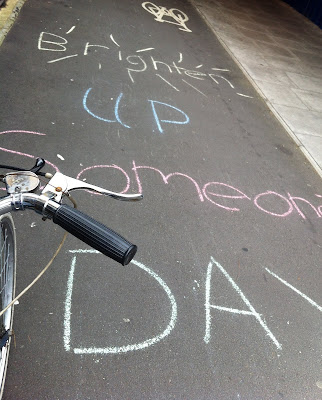 Brighten
UP
Someone
DAY